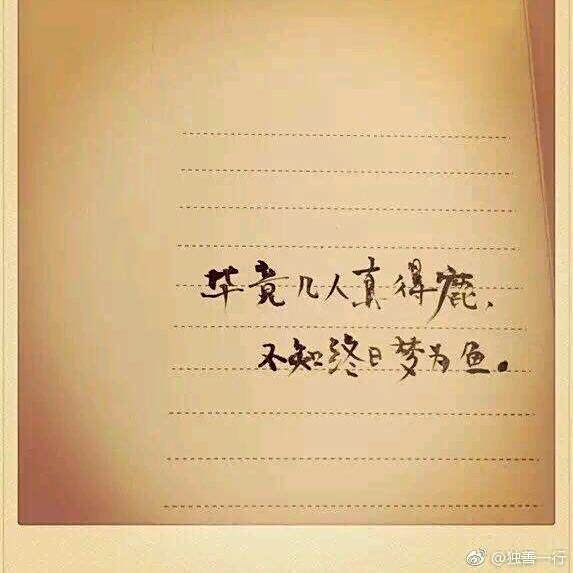 毕竟几人真得鹿、
不知终日梦为鱼。
@独善一行